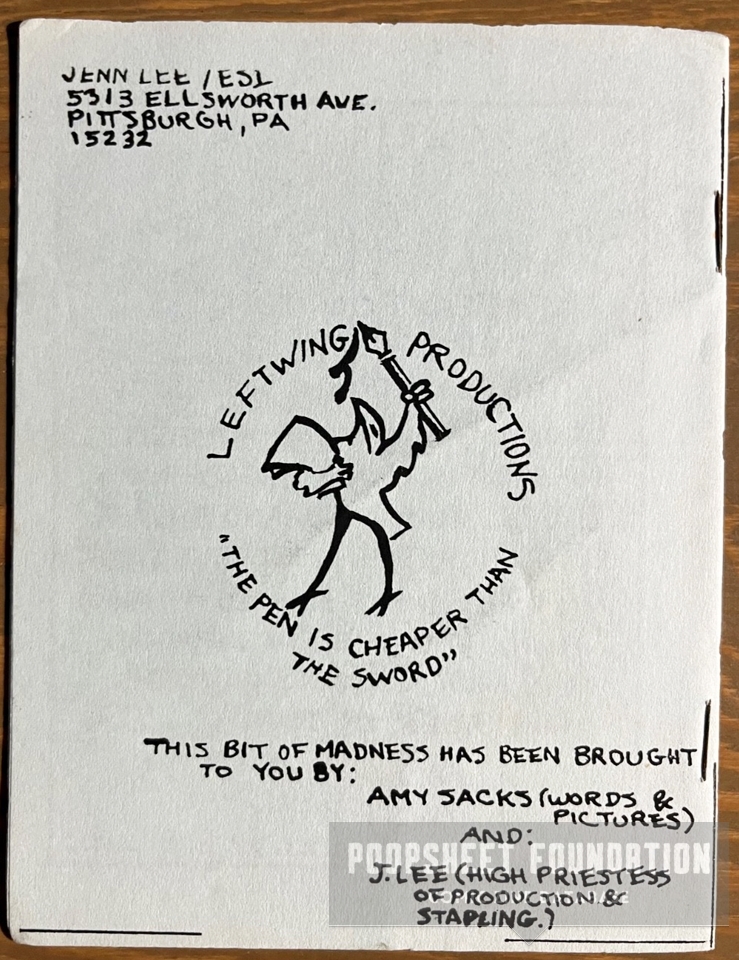 JENN LEE / ESL
5313 ELLSWORTH AVE.
PITTSBURGH, PA
15232
LEFTWING PRODUCTIONS
"THE PEN IS CHEAPER THAN
THE SWORD"
THIS BIT OF MADNESS HAS BEEN BROUGHT
TO YOU BY:
AMY SACKS (WORDS &
PICTURES)
AND:
POOPSHEET FOUNDATION
J. LEE (HIGH PRIESTESS
OF PRODUCTION &
STAPLING.)